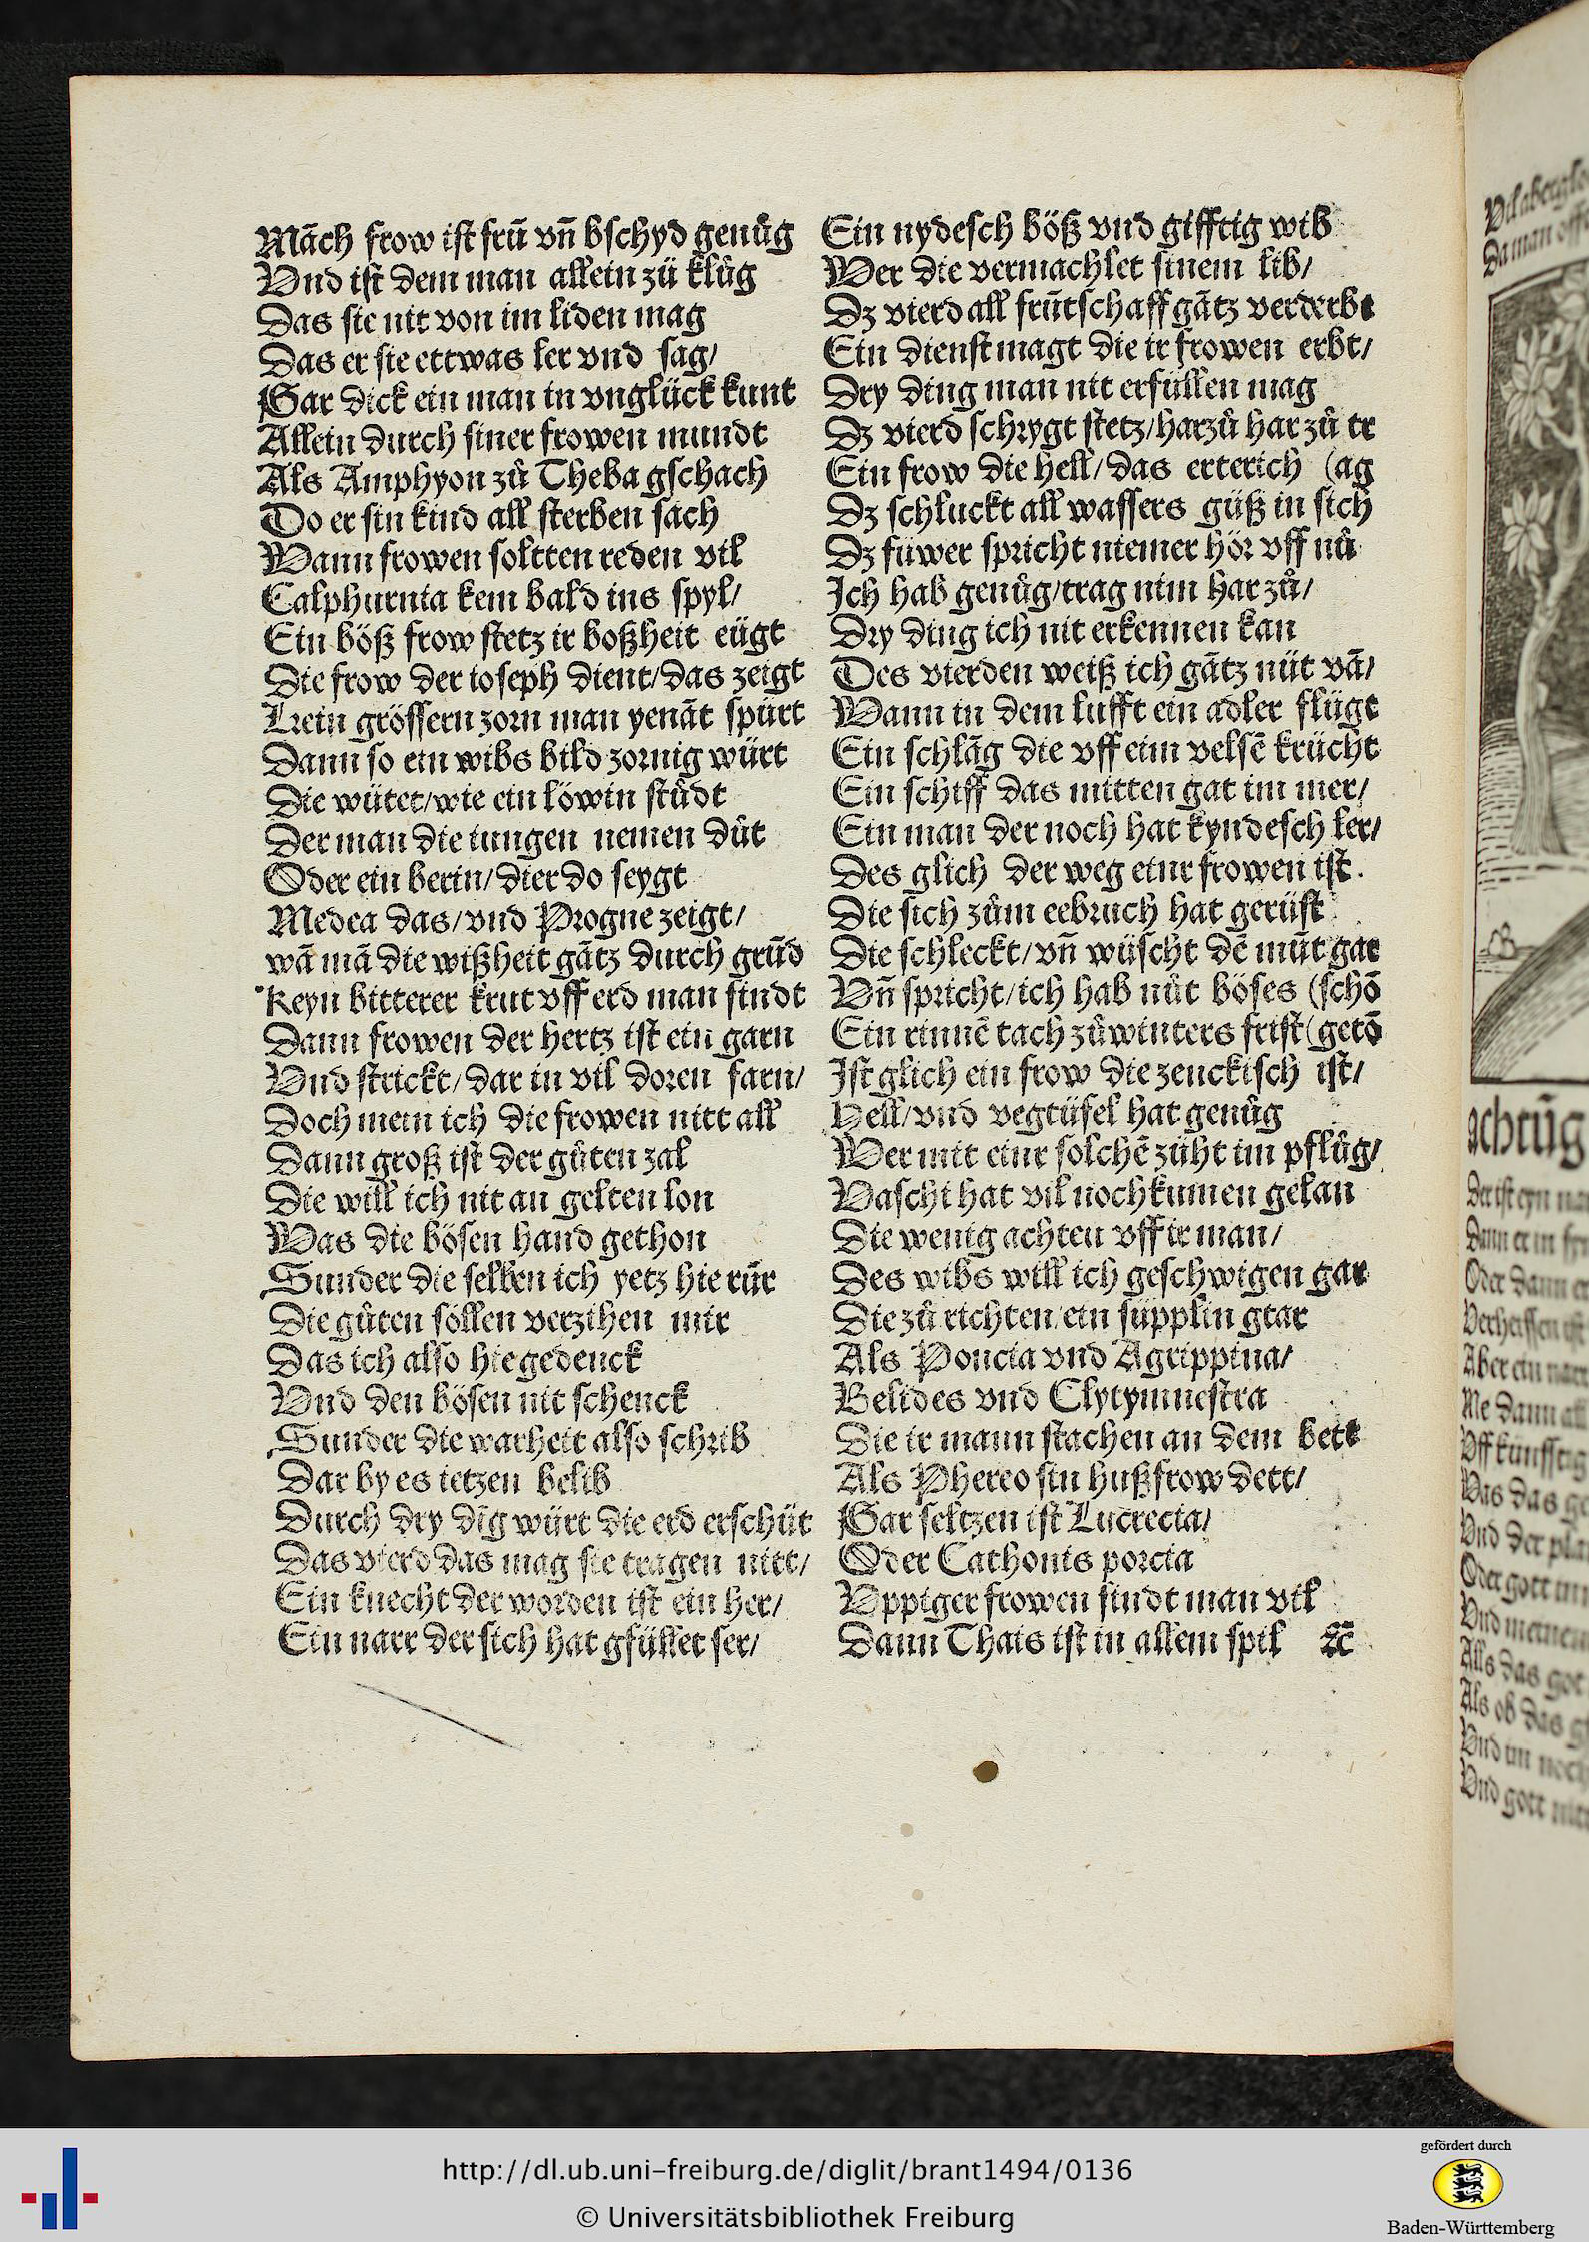 Mãch frow ist frũ vñ bschyd genůg
Vnd ist dem man allein zů klůg
Das sie nit von im liden mag
Das er sie ettwas ler vnd sag/
Gar dick ein man in vnglück kunt
Allein durch siner frowen mundt
Als Amphyon zů Theba gschach
Do er sin kind all sterben sach
Wann frowen soltten reden vil
Calphurnia kem bald ins spyl/
Ein böß frow stetz ir boßheit eügt
Die frow der ioseph dient/das zeigt
Krein grössern zorn man yenãt spürt
Dann so ein wibs bild zornig würt
Die wütet/wie ein löwin stůdt
Der man die iungen nemen důt
Oder ein berin/dier do seygt
Medea das/vnd Progne zeigt/
wã mã die wißheit gãtz durch grũd
Keyn bitterer krut vff erd man findt
Dann frowen der hertz ist ein garn
Vnd strickt/dar in vil doren farn/
Doch mein ich die frowen nitt all
Dann groß ist der gůten zal
Die will ich nit an gelten lon
Was die bösen hand gethon
Sunder die selben ich yetz hie rũr
Die gůten söllen verzihen mir
Das ich also hie gedenck
Vnd den bösen nit schenck
Sunder die warheit also schrib
Dar by es ietzen belib
Durch dry dĩg würt die erd erschüt
Das vierd das mag sie tragen nitt/
Ein knecht der worden ist ein her/
Ein narr der sich hat gfüllet ser/
Ein nydesch böß vnd gifftig wib
Wer die vermachlet sinem lib/
Dz vierd all frũtschaff gãtz verderbt
Ein dienstmagt die ir frowen erbt/
Dry ding man nit erfüllen mag
Dz vierd schrygt stetz/harzů har zů tr
Ein frow die hell/das erterich (ag
Dz schluckt all wassers güß in sich
Dz füwer spricht niemer hör vff nů
Ich hab genůg/trag nim har zů/
Dry ding ich nit erkennen kan
Des vierden weiß ich gãtz nüt vã/
Wann in dem lufft ein adler flügt
Ein schlãg die vff eim velsẽ krücht
Ein schiff das mitten gat im mer/
Ein man der noch hat kyndesch ler/
Des glich der weg einr frowen ist.
Die sich zům eebruch hat gerüst
Die schleckt/vñ wüscht dẽ mũt gar
Vñ spricht/ich hab nüt böses (schõ
Ein rinnẽ tach zů winters frist (getõ
Ist glich ein frow die zenckisch ist/
Hell/vnd vegtüfel hat genůg
Wer mit einr solchẽ züht im pflůg/
Vaschi hat vil nochkumen gelan
Die wenig achten vff ir man/
Des wibs will ich geschwigen gar
Die zů richten/ein süpplin gtar
Als Poncia vnd Agrippina/
Belides vnd Clytymnestra
Die ir mann stachen an dem bett
Als Phereo sin hußfrow dett/
Gar seltzen ist Lucrecia/
Oder Cathonis porcia
Vppiger frowen findt man vil
Dann Thais ist in allem spil ⁊c̃
Vil abergl
Da man off
achtũg
Der ist eyn na
Dann er in
Oder dann e
Verheissen ist
Aber ein narr
Me dann all
Vff künfftig
Was das ge
Vnd der pla
Oder gott im
Vnd meinen
Alls das got
Als ob das
Vnd im noch
Vnd gott nit
http://dl.ub.uni-freiburg.de/diglit/brant1494/0136
© Universitätsbibliothek Freiburg
gefördert durch
Baden-Württemberg